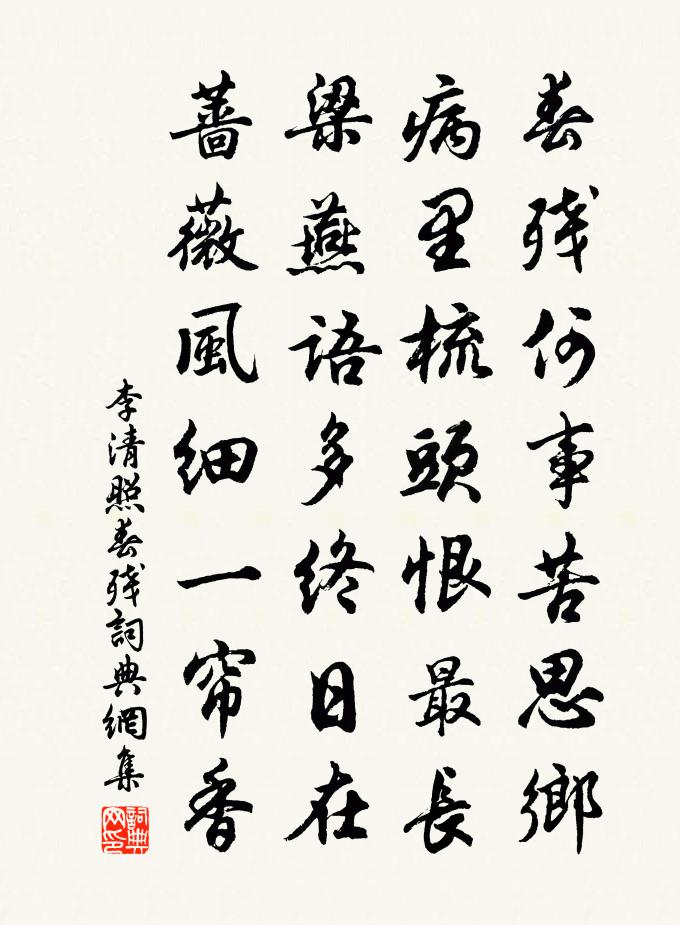 春残何事苦思鄉
病里梳頭恨最長
梁燕語多終日在
薔薇風細一帘香
李清照春残詞典網集
詞典網印